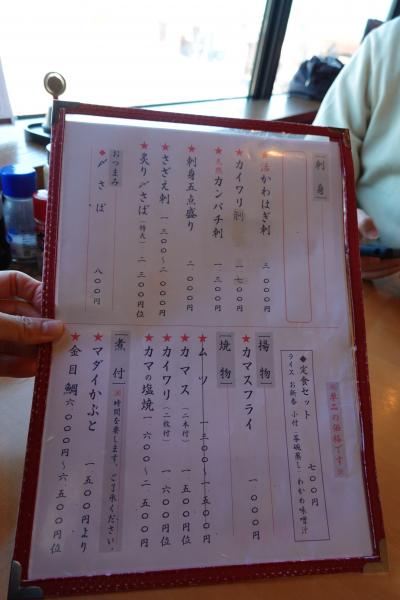 刺身
★活かわはぎ刺 三〇〇〇円
★カイワリ刺 一七〇〇円
★天然カンパチ刺 一三〇〇円
★刺身五点盛り 二〇〇〇円
★さざえ刺 一三〇〇～二〇〇〇円
★炙り〆さば(特大) 二三〇〇円位
おつまみ
◆〆さば 八〇〇円
※単品の価格です※
◆定食セット 七〇〇円
ライス お新香 小付 茶碗蒸し わかめ味噌汁
揚物
★カマスフライ 一〇〇〇円
焼物
★ムツ 一三〇〇～一五〇〇円
★カマス(二本付) 一五〇〇円
★カイワリ(二枚付) 一六〇〇円
★カマの塩焼 一六〇〇～二五〇〇円
煮付 ※時間を要します。ご了承ください。
★マダイかぶと 一五〇〇円より
★金目鯛 六〇〇〇円～六五〇〇円位